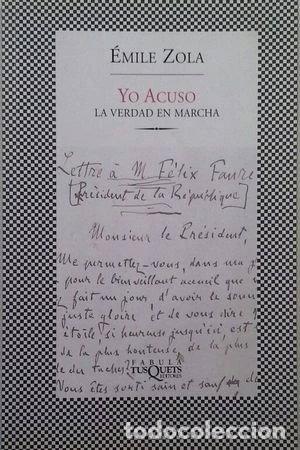 ÉMILE ZOLA
YO ACUSO
LA VERDAD EN MARCHA
Lettre à M. Félix Faure
[Président de la République]
Monsieur le Président,
Me permettez-vous, dans ma
pour le bienveillant accueil que
fait un jour, d'avoir le
juste gloire et de vous dire
étoile, si heureuse jusqu'ici, est
de la plus honteuse, de la plus
des taches?
Vous êtes sorti sain et sauf
FÁBULA
TUSQUETS
EDITORES
todocoleccion